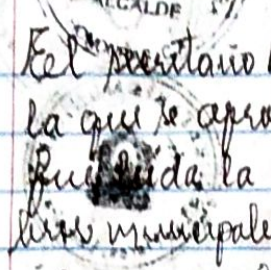 ALCALDE
El secretario
la que se apro
fue leida la
municipale